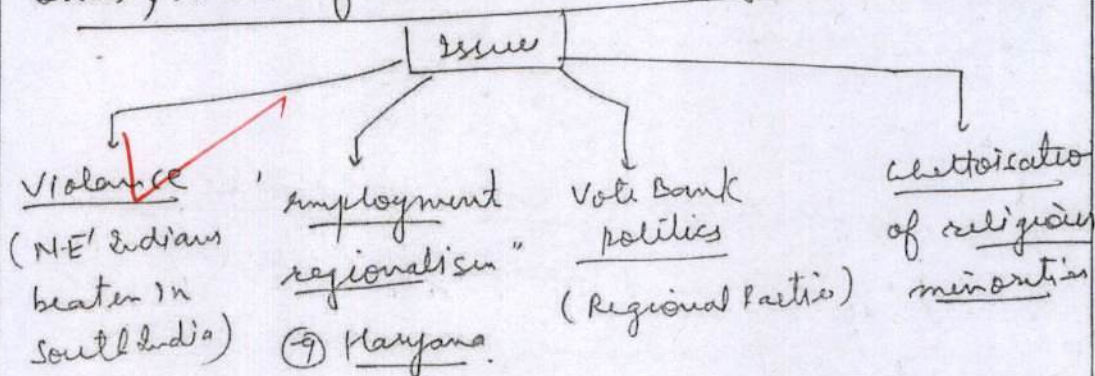 Issue
Violance
(N.E' Indians
beaten in
South India)
'employment
regionalism"
eg Haryana.
Vote Bank
politics
(Regional Parties)
Ghettoisatio
of religious
minorities